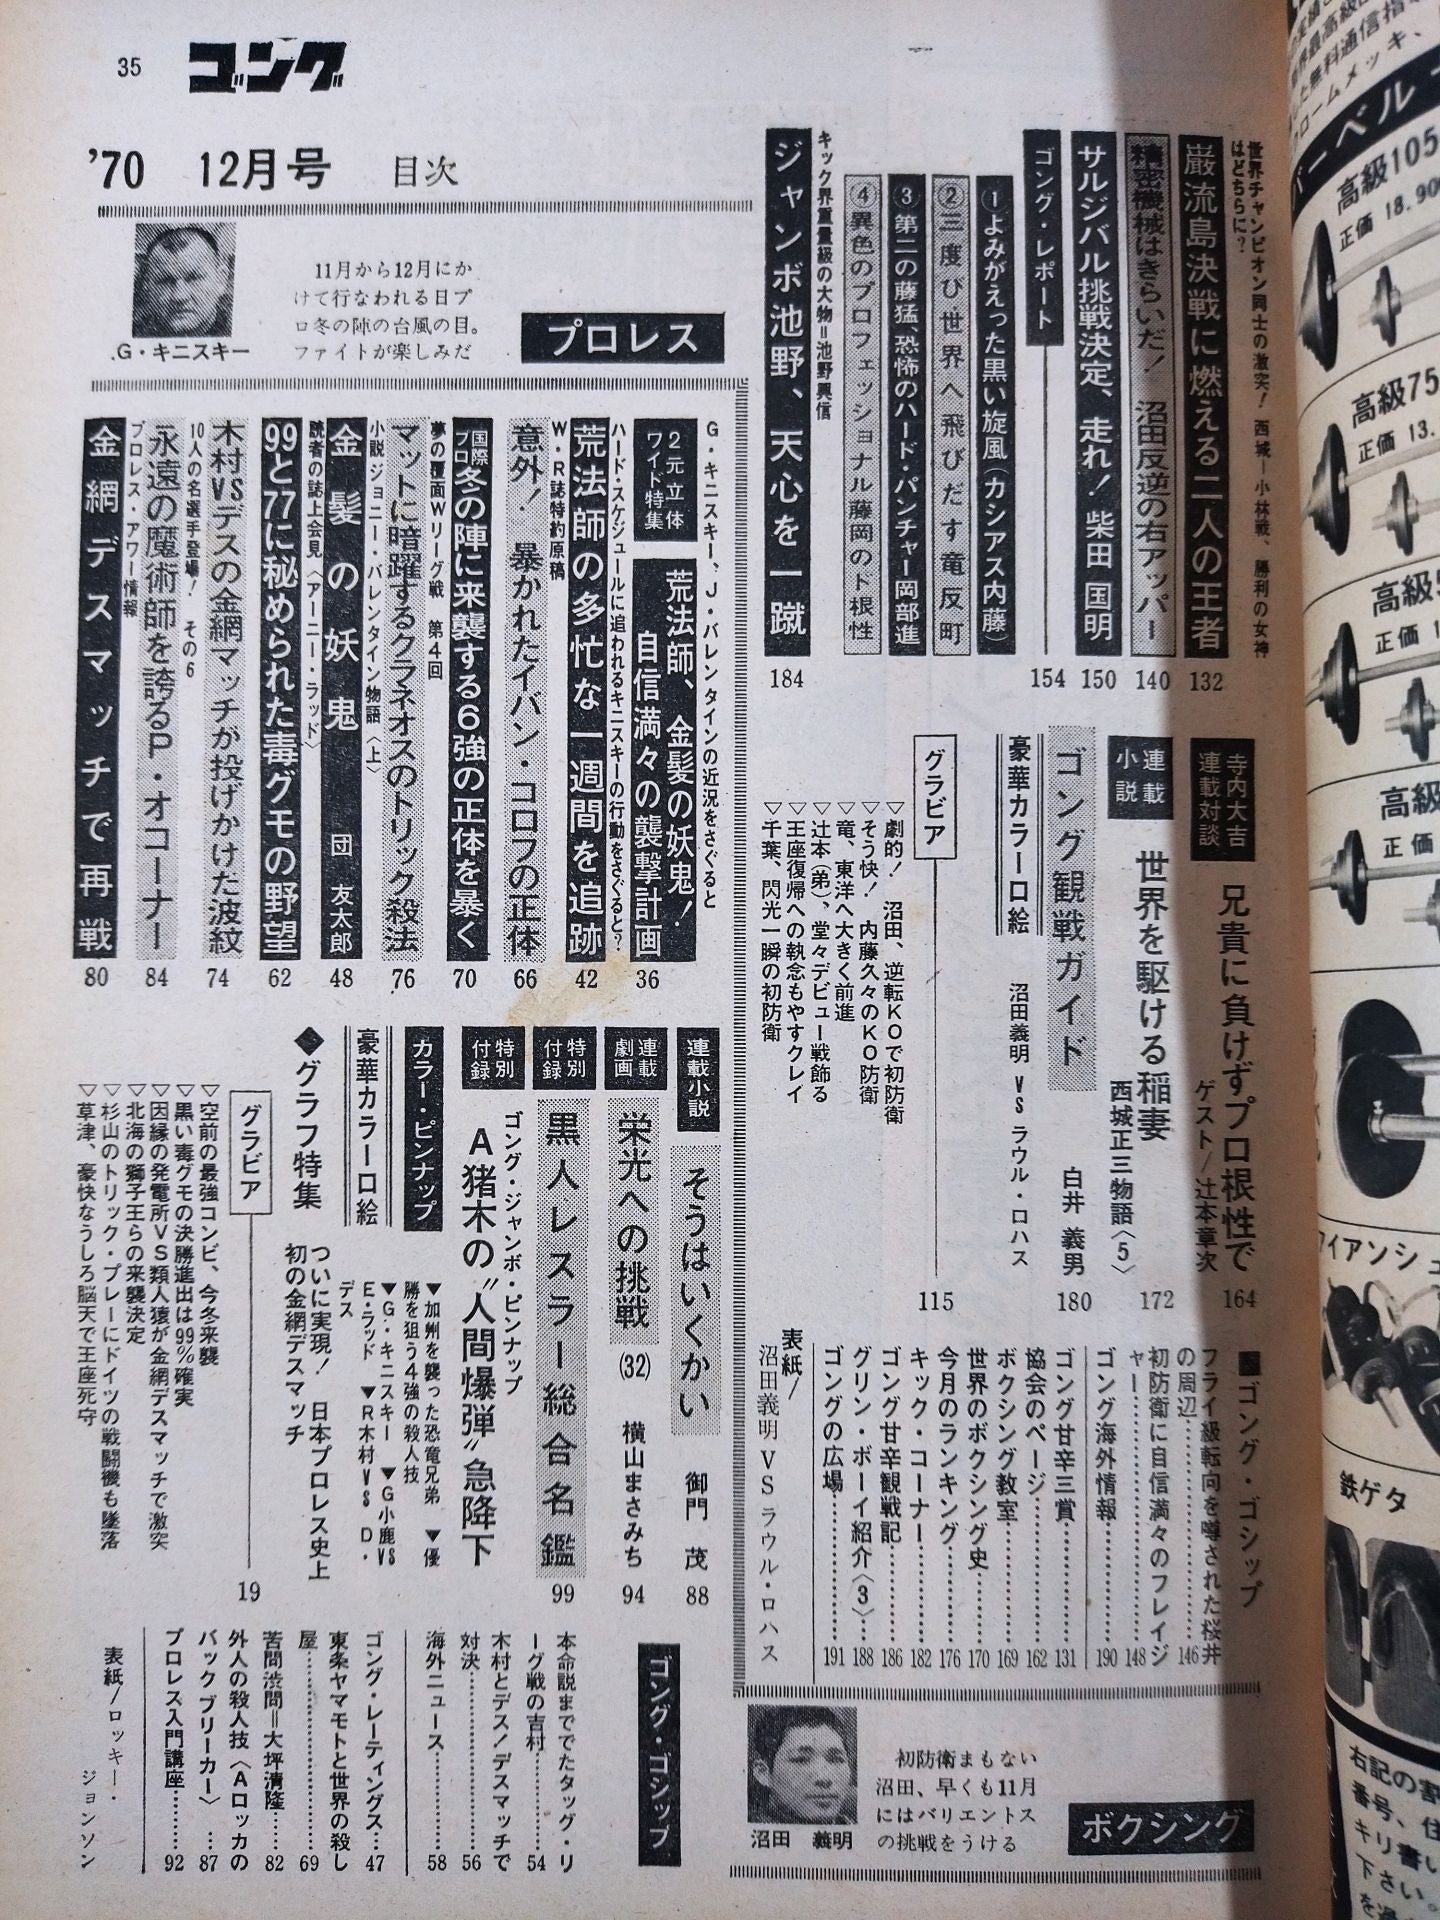 35
ゴング
'70 12月号 目次
11月から12月にか
けて行なわれる日プ
ロ冬の陣の台風の目。
ファイトが楽しみだ
G・キニスキー
プロレス
G・キニスキー、J・バレンタインの近況をさぐると
2元立体
ワイド特集
荒法師、金髪の妖鬼!
自信満々の襲撃計画
36
ハード・スケジュールに追われるキニスキーの行動をさぐると?
荒法師の多忙な一週間を追跡
42
W・R誌特約原稿
意外! 暴かれたイバン・コロフの正体
66
国際プロ
冬の陣に来襲する6強の正体を暴く
70
夢の覆面Wリーグ戦 第4回
マットに暗躍するクラネオスのトリック殺法
76
小説ジョニー・バレンタイン物語〈上〉
金髪の妖鬼 団 友太郎
48
読者の誌上会見〈アーニー・ラッド〉
99と77に秘められた毒グモの野望
62
木村VSデスの金網マッチが投げかけた波紋
74
10人の名選手登場! その6
永遠の魔術師を誇るP・オコーナー
84
プロレス・アワー情報
金網デスマッチで再戦
80
連載小説
そうはいくかい 御門 茂
88
連載劇画
栄光への挑戦(32) 横山まさみち
94
特別付録
黒人レスラー総合名鑑
99
特別付録
ゴング・ジャンボ・ピンナップ
A猪木の"人間爆弾"急降下
カラー・ピンナップ
▼加州を襲った恐竜兄弟 ▼優
勝を狙う4強の殺人技
豪華カラー口絵
▼G・キニスキー ▼G小鹿VS
E・ラッド ▼R木村VS D・
デス
◆グラフ特集
ついに実現! 日本プロレス史上
初の金網デスマッチ
グラビア
19
▽空前の最強コンビ、今冬来襲
▽黒い毒グモの決勝進出は99%確実
▽因縁の発電所VS類人猿が金網デスマッチで激突
▽北海の獅子王らの来襲決定
▽杉山のトリック・プレーにドイツの戦闘機も墜落
▽草津、豪快なうしろ脳天で王座死守
ゴング・ゴシップ
本命説まででたタッグ・リ
ーグ戦の吉村……54
木村とデス!デスマッチで
対決……56
海外ニュース……58
ゴング・レーティングス…47
東条ヤマモトと世界の殺し
屋……69
苦問渋問=大坪清隆……82
外人の殺人技〈Aロッカの
バックブリーカー〉…87
プロレス入門講座……92
表紙/ロッキー・
ジョンソン
世界チャンピオン同士の激突! 西城―小林戦、勝利の女神
はどちらに?
巌流島決戦に燃える二人の王者
132
精密機械はきらいだ! 沼田反逆の右アッパー
140
サルジバル挑戦決定、走れ! 柴田国明
150
ゴング・レポート
154
①よみがえった黒い旋風(カシアス内藤)
②三度び世界へ飛びだす竜反町
③第二の藤猛、恐怖のハード・パンチャー岡部進
④異色のプロフェッショナル藤岡のド根性
キック界重量級の大物=池野興信
ジャンボ池野、天心を一蹴
184
寺内大吉
連載対談
兄貴に負けずプロ根性で
ゲスト/辻本章次
164
連載小説
世界を駆ける稲妻
西城正三物語〈5〉
172
ゴング観戦ガイド 白井義男
180
豪華カラー口絵 沼田義明 VS ラウル・ロハス
グラビア
115
▽劇的! 沼田、逆転KOで初防衛
▽そう快! 内藤久々のKO防衛
竜、東洋へ大きく前進
▽辻本(弟)、堂々デビュー戦飾る
▽王座復帰への執念もやすクレイ
▽千葉、閃光一瞬の初防衛
■ゴング・ゴシップ
フライ級転向を噂された桜井
の周辺……146
初防衛に自信満々のフレイジ
ャー……148
ゴング海外情報……190
ゴング甘辛三賞……131
協会のページ……162
ボクシング教室……169
世界のボクシング史……170
今月のランキング……176
キック・コーナー……182
ゴング甘辛観戦記……186
グリン・ボーイ紹介〈3〉…188
ゴングの広場……191
表紙/
沼田義明 VS ラウル・ロハス
沼田 義明
初防衛まもない
沼田、早くも11月
にはバリエントス
の挑戦をうける
ボクシング
バーベル
高級105
正価 18.90
高級75
正価 13.
高級5
正価 1
高級
正価
アイアンシュ
鉄ゲタ
右記の割
番号、住
キリ書い
下さい。